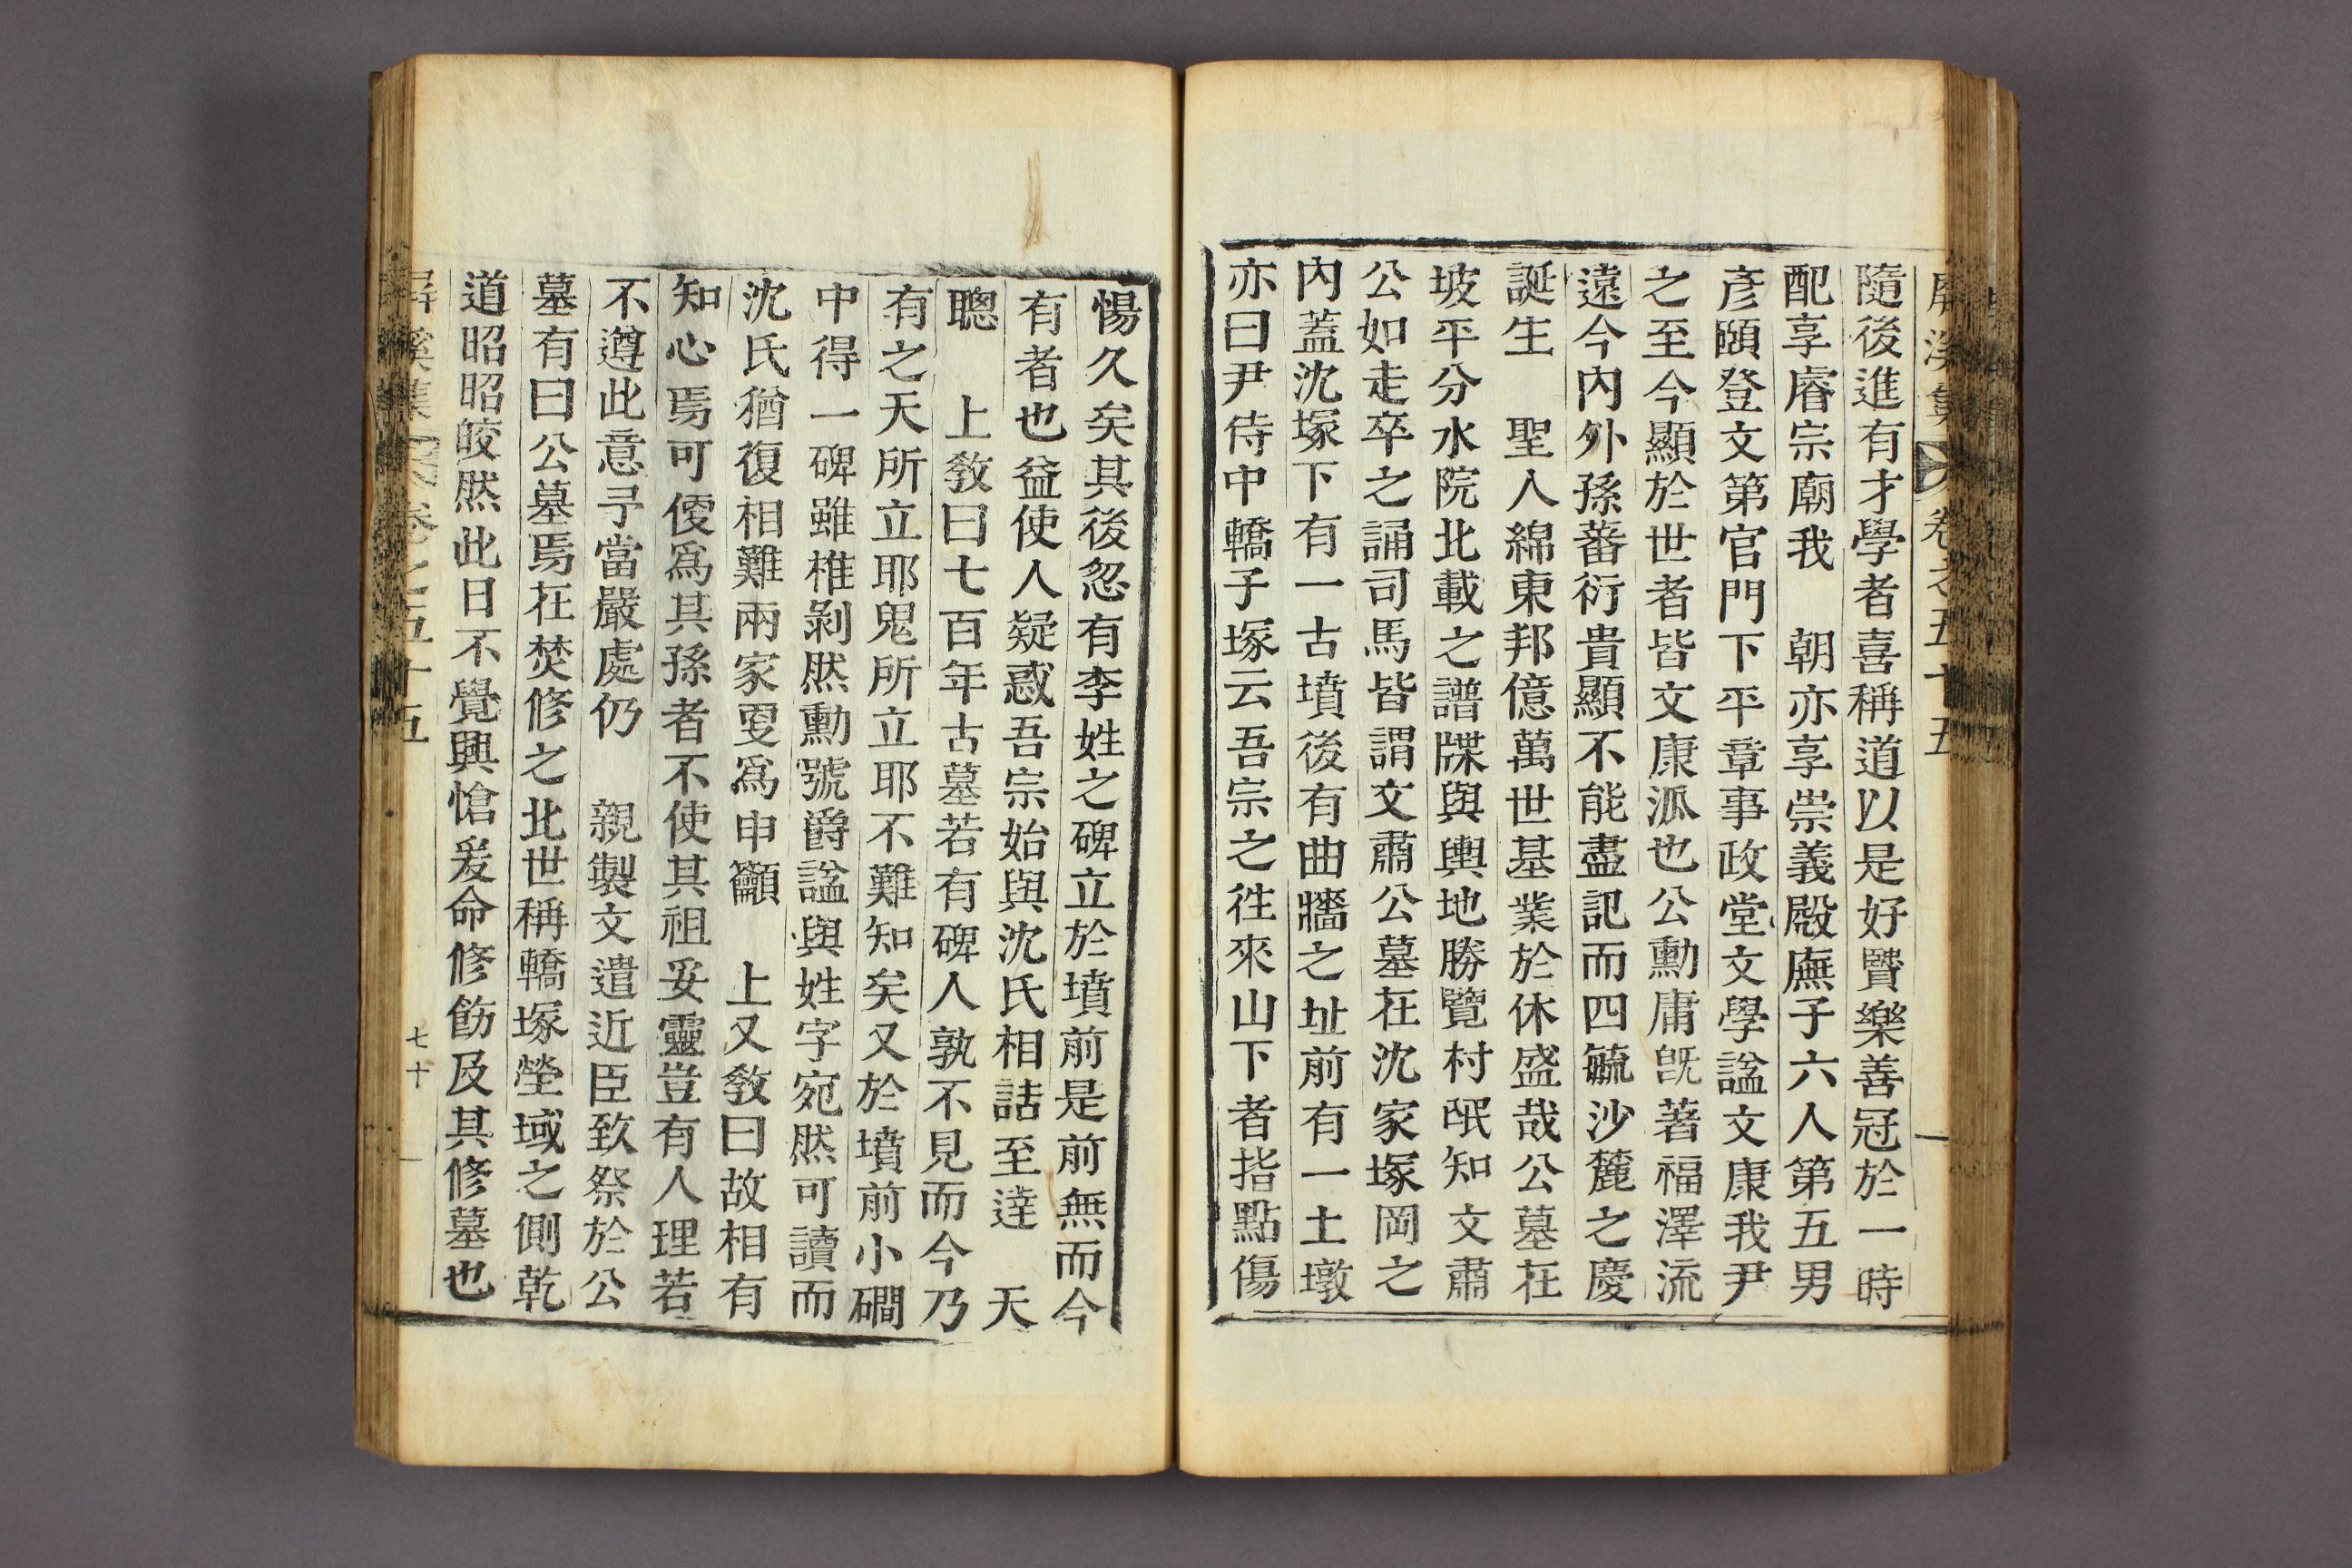 屛溪集 卷之五十五
隨後進有才學者喜稱道以是好賢樂善冠於一時
配享睿宗廟我 朝亦享崇義殿廡子六人第五男
彥頤登文第官門下平章事政堂文學諡文康我尹
之至今顯於世者皆文康派也公勳庸旣著福澤流
遠今內外孫蕃衍貴顯不能盡記而四毓沙麓之慶
誕生 聖人綿東邦億萬世基業於休盛哉公墓在
坡平分水院北載之譜牒與輿地勝覽村氓知文肅
公如走卒之誦司馬皆謂文肅公墓在沈家塚岡之
內蓋沈塚下有一古墳後有曲墻之址前有一土墩
亦曰尹侍中轎子塚云吾宗之往來山下者指點傷
惕久矣其後忽有李姓之碑立於墳前是前無而今
有者也益使人疑惑吾宗始與沈氏相詰至達 天
聰 上敎曰七百年古墓若有碑人孰不見而今乃
有之天所立耶鬼所立耶不難知矣又於墳前小磵
中得一碑雖椎剝然勳號爵諡與姓字宛然可讀而
沈氏猶復相難兩家更爲申籲 上又敎曰故相有
知心焉可便爲其孫者不使其祖妥靈豈有人理若
不遵此意予當嚴處仍 親製文遣近臣致祭於公
墓有曰公墓焉在焚修之北世稱轎塚塋域之側乾
道昭昭皎然此日不覺興愴爰命修飭及其修墓也
屛溪集 卷之五十五 七十